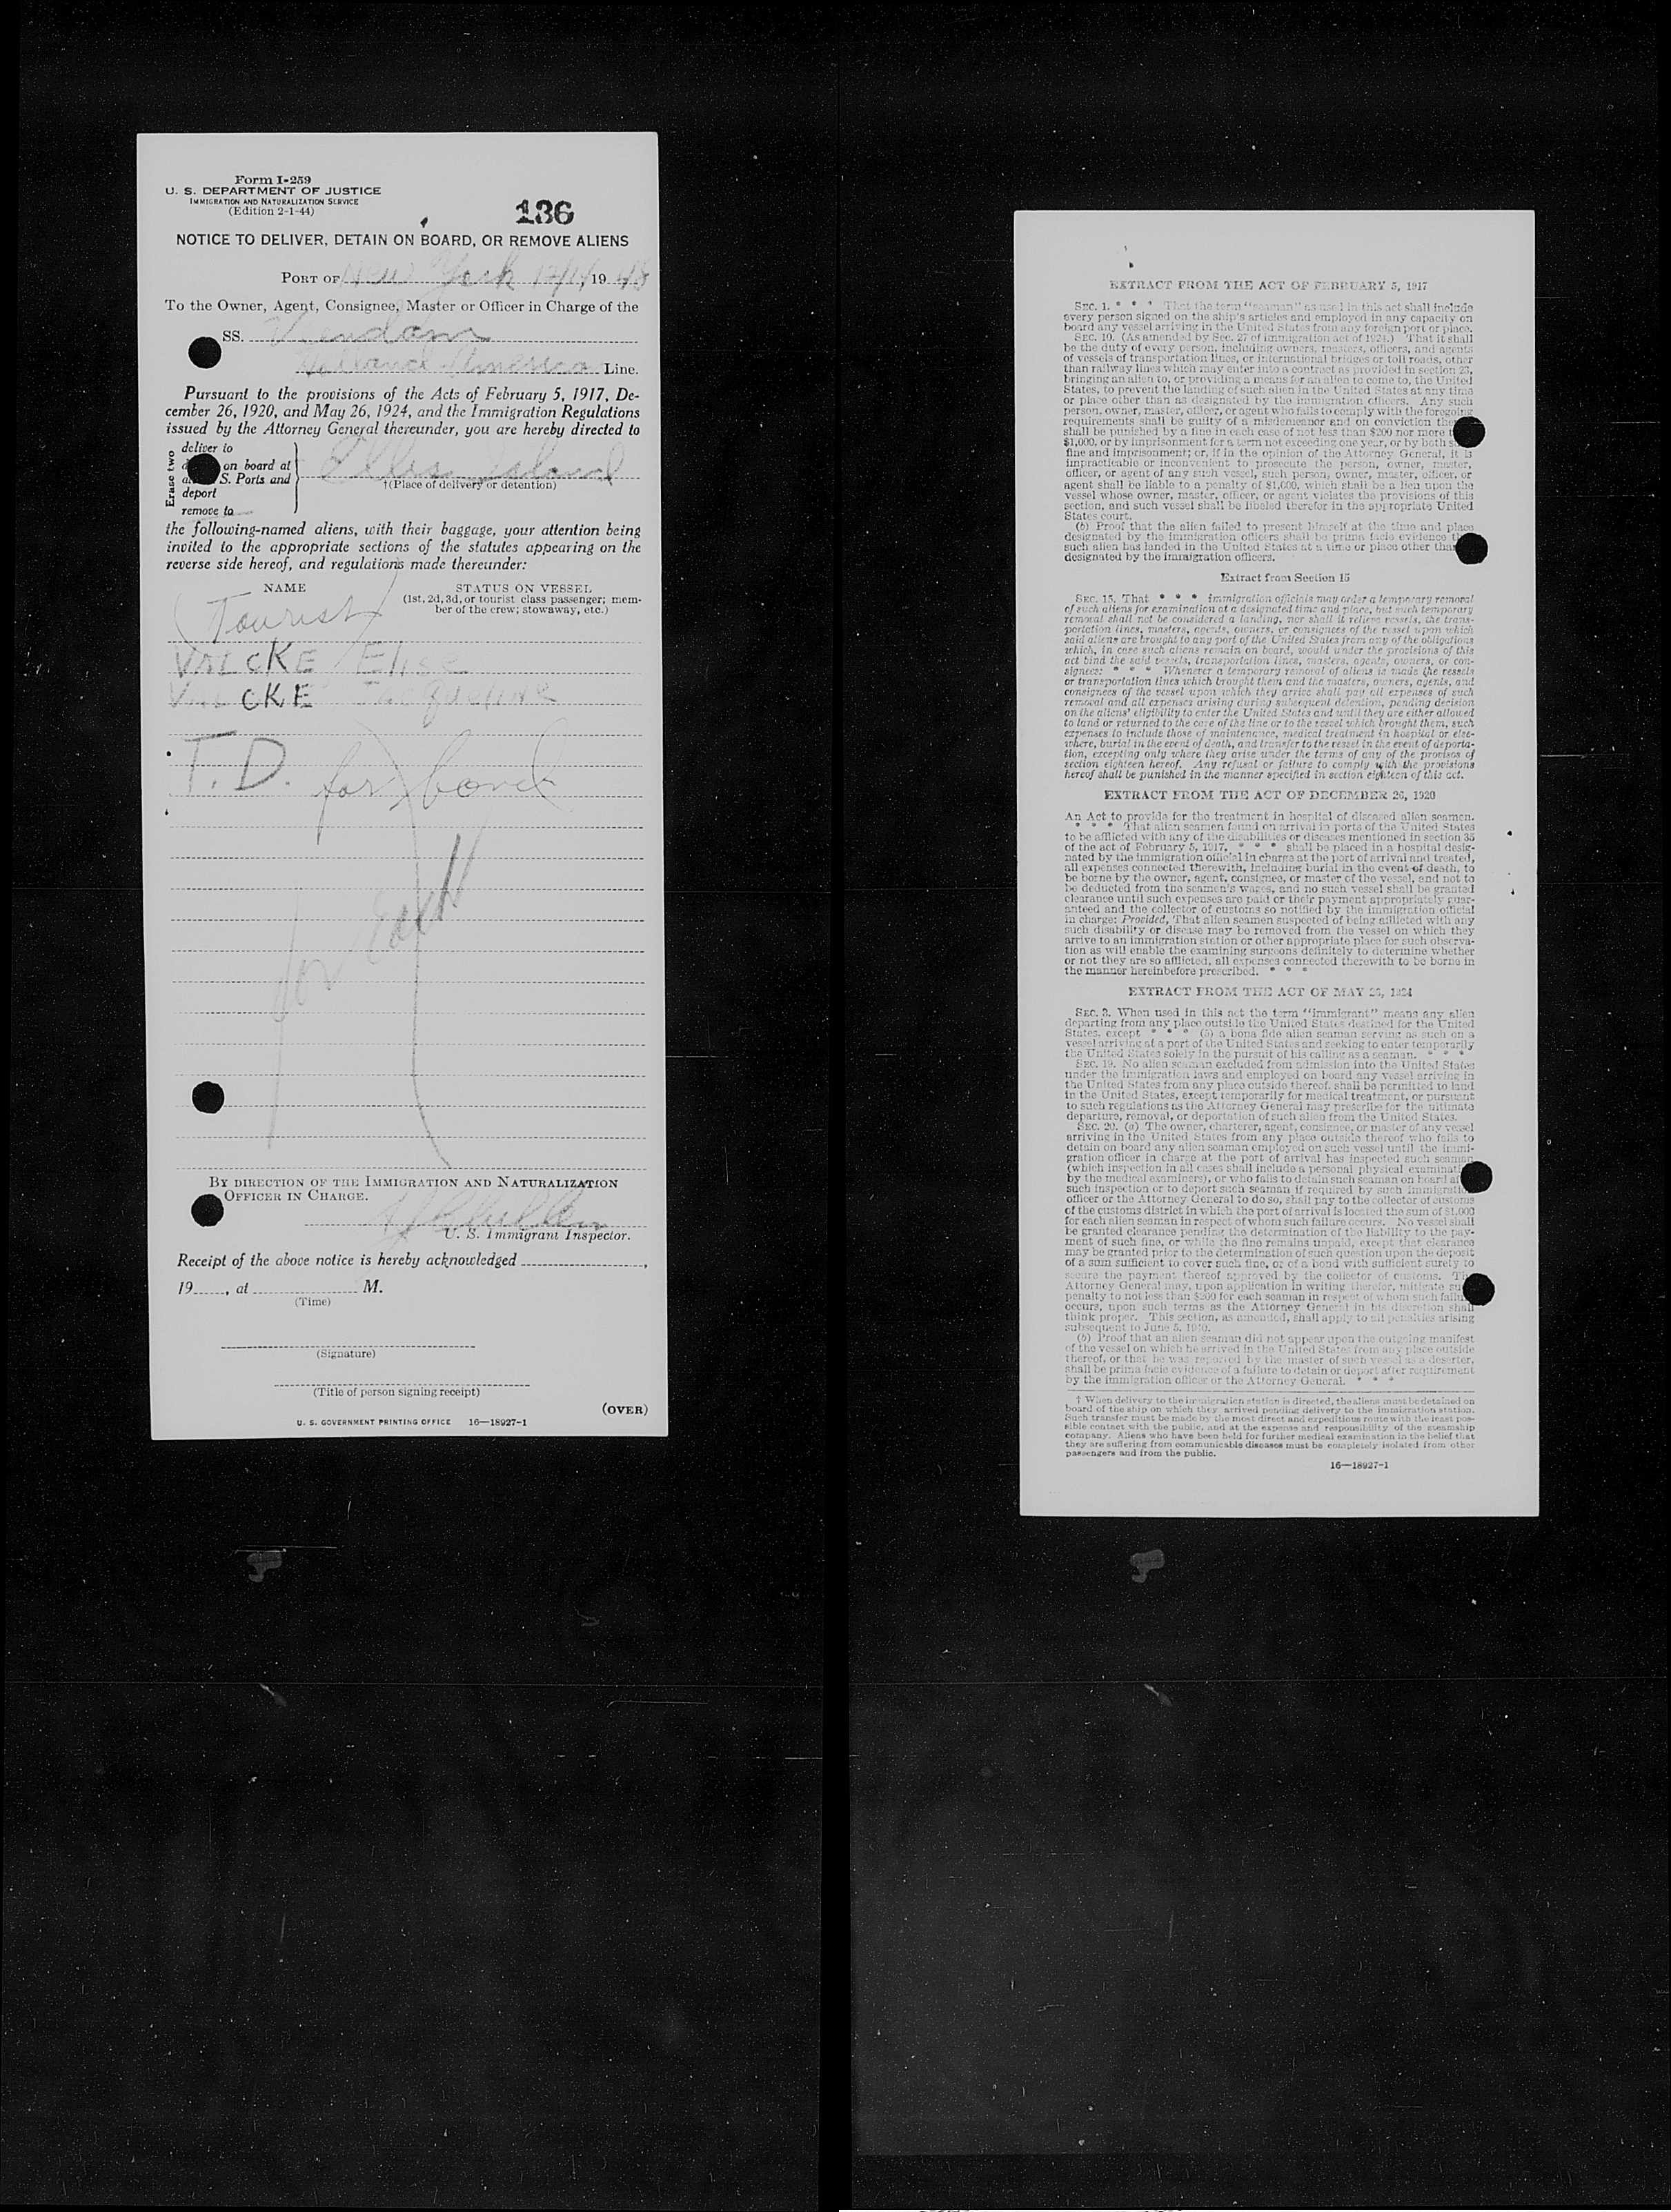 Form I-259
U. S. DEPARTMENT OF JUSTICE
IMMIGRATION AND NATURALIZATION SERVICE
(Edition 2-1-44)
136
NOTICE TO DELIVER, DETAIN ON BOARD, OR REMOVE ALIENS
PORT OF New York 19 48
To the Owner, Agent, Consignee, Master or Officer in Charge of the
SS. Veendam
Holland America Line.
Pursuant to the provisions of the Acts of February 5, 1917, De-
cember 26, 1920, and May 26, 1924, and the Immigration Regulations
issued by the Attorney General thereunder, you are hereby directed to
Erase two
deliver to
on board at
S. Ports and
deport
remove to
Ellis Island
†(Place of delivery or detention)
the following-named aliens, with their baggage, your attention being
invited to the appropriate sections of the statutes appearing on the
reverse side hereof, and regulations made thereunder:
NAME STATUS ON VESSEL
(1st, 2d, 3d, or tourist class passenger; mem-
ber of the crew; stowaway, etc.)
(Tourist)
VALCKE Elise
VALCKE Jacqueline
T.D. for bond
for each
BY DIRECTION OF THE IMMIGRATION AND NATURALIZATION
OFFICER IN CHARGE.
U. S. Immigrant Inspector.
Receipt of the above notice is hereby acknowledged ,
19 , at M.
(Time)
(Signature)
(Title of person signing receipt)
(OVER)
U. S. GOVERNMENT PRINTING OFFICE 16—18927-1
EXTRACT FROM THE ACT OF FEBRUARY 5, 1917
SEC. 1. * * * That the term "seaman" as used in this act shall include
every person signed on the ship's articles and employed in any capacity on
board any vessel arriving in the United States from any foreign port or place.
SEC. 10. (As amended by Sec. 27 of immigration act of 1924.) That it shall
be the duty of every person, including owners, masters, officers, and agents
of vessels of transportation lines, or international bridges or toll roads, other
than railway lines which may enter into a contract as provided in section 23,
bringing an alien to, or providing a means for an alien to come to, the United
States, to prevent the landing of such alien in the United States at any time
or place other than as designated by the immigration officers. Any such
person, owner, master, officer, or agent who fails to comply with the foregoing
requirements shall be guilty of a misdemeanor and on conviction
shall be punished by a fine in each case of not less than $200 nor more
$1,000, or by imprisonment for a term not exceeding one year, or by both
fine and imprisonment; or, if in the opinion of the Attorney General, it is
impracticable or inconvenient to prosecute the person, owner, master,
officer, or agent of any such vessel, such person, owner, master, officer, or
agent shall be liable to a penalty of $1,000, which shall be a lien upon the
vessel whose owner, master, officer, or agent violates the provisions of this
section, and such vessel shall be libeled therefor in the appropriate United
States court.
(b) Proof that the alien failed to present himself at the time and place
designated by the immigration officers shall be prima facie evidence
such alien has landed in the United States at a time or place other than
designated by the immigration officers.
Extract from Section 15
SEC. 15. That * * * immigration officials may order a temporary removal
of such aliens for examination at a designated time and place, but such temporary
removal shall not be considered a landing, nor shall it relieve vessels, the trans-
portation lines, masters, agents, owners, or consignees of the vessel upon which
said aliens are brought to any port of the United States from any of the obligations
which, in case such aliens remain on board, would under the provisions of this
act bind the said vessels, transportation lines, masters, agents, owners, or con-
signees: * * * Whenever a temporary removal of aliens is made the vessels
or transportation lines which brought them and the masters, owners, agents, and
consignees of the vessel upon which they arrive shall pay all expenses of such
removal and all expenses arising during subsequent detention, pending decision
on the aliens' eligibility to enter the United States and until they are either allowed
to land or returned to the care of the line or to the vessel which brought them, such
expenses to include those of maintenance, medical treatment in hospital or else-
where, burial in the event of death, and transfer to the vessel in the event of deporta-
tion, excepting only where they arise under the terms of any of the provisos of
section eighteen hereof. Any refusal or failure to comply with the provisions
hereof shall be punished in the manner specified in section eighteen of this act.
EXTRACT FROM THE ACT OF DECEMBER 26, 1920
An Act to provide for the treatment in hospital of diseased alien seamen.
* * * That alien seamen found on arrival in ports of the United States
to be afflicted with any of the disabilities or diseases mentioned in section 35
of the act of February 5, 1917, * * * shall be placed in a hospital desig-
nated by the immigration official in charge at the port of arrival and treated,
all expenses connected therewith, including burial in the event of death, to
be borne by the owner, agent, consignee, or master of the vessel, and not to
be deducted from the seamen's wages, and no such vessel shall be granted
clearance until such expenses are paid or their payment appropriately guar-
anteed and the collector of customs so notified by the immigration official
in charge: Provided, That alien seamen suspected of being afflicted with any
such disability or disease may be removed from the vessel on which they
arrive to an immigration station or other appropriate place for such observa-
tion as will enable the examining surgeons definitely to determine whether
or not they are so afflicted, all expenses connected therewith to be borne in
the manner hereinbefore prescribed. * * *
EXTRACT FROM THE ACT OF MAY 26, 1924
SEC. 3. When used in this act the term "immigrant" means any alien
departing from any place outside the United States destined for the United
States, except * * * (5) a bona fide alien seaman serving as such on a
vessel arriving at a port of the United States and seeking to enter temporarily
the United States solely in the pursuit of his calling as a seaman. * * *
SEC. 19. No alien seaman excluded from admission into the United States
under the immigration laws and employed on board any vessel arriving in
the United States from any place outside thereof, shall be permitted to land
in the United States, except temporarily for medical treatment, or pursuant
to such regulations as the Attorney General may prescribe for the ultimate
departure, removal, or deportation of such alien from the United States.
SEC. 20. (a) The owner, charterer, agent, consignee, or master of any vessel
arriving in the United States from any place outside thereof who fails to
detain on board any alien seaman employed on such vessel until the immi-
gration officer in charge at the port of arrival has inspected such seaman
(which inspection in all cases shall include a personal physical
by the medical examiners), or who fails to detain such seaman on board
such inspection or to deport such seaman if required by such
officer or the Attorney General to do so, shall pay to the collector of customs
of the customs district in which the port of arrival is located the sum of $1,000
for each alien seaman in respect of whom such failure occurs. No vessel shall
be granted clearance pending the determination of the liability to the pay-
ment of such fine, or while the fine remains unpaid, except that clearance
may be granted prior to the determination of such question upon the deposit
of a sum sufficient to cover such fine, or of a bond with sufficient surety to
secure the payment thereof approved by the collector of customs.
Attorney General may, upon application in writing therefor, mitigate
penalty to not less than $200 for each seaman in respect of whom such
occurs, upon such terms as the Attorney General in his discretion shall
think proper. This section, as amended, shall apply to all penalties arising
subsequent to June 5, 1940.
(b) Proof that an alien seaman did not appear upon the outgoing manifest
of the vessel on which he arrived in the United States from any place outside
thereof, or that he was reported by the master of such vessel as a deserter,
shall be prima facie evidence of a failure to detain or deport after requirement
by the immigration officer or the Attorney General. * * *
† When delivery to the immigration station is directed, the aliens must be detained on
board of the ship on which they arrived pending delivery to the immigration station.
Such transfer must be made by the most direct and expeditious route with the least pos-
sible contact with the public, and at the expense and responsibility of the steamship
company. Aliens who have been held for further medical examination in the belief that
they are suffering from communicable diseases must be completely isolated from other
passengers and from the public.
16—18927-1